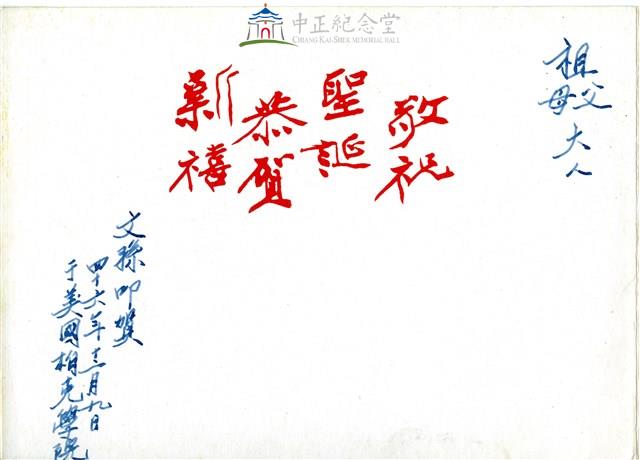 中正紀念堂
CHIANG KAI-SHEK MEMORIAL HALL
祖父母大人
敬祝
聖誕
恭賀
新禧
文孫叩賀
四十六年十二月九日
于美國柏克學院